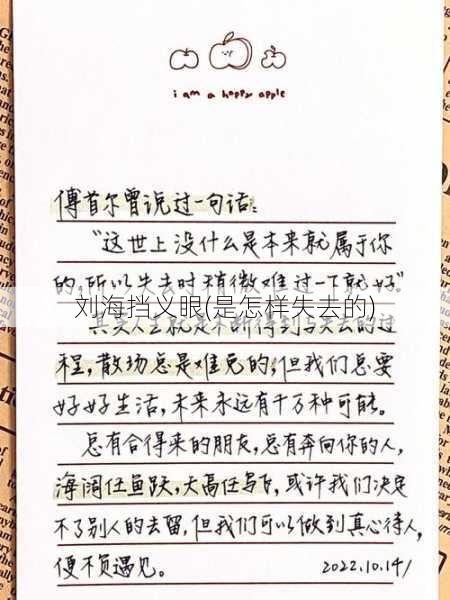 i am a happy apple
傅首尔曾说过一句话:
“这世上没什么是本来就属于你
的,所以失去时稍微难过一下就好”
刘海挡义眼(是怎样失去的)
其实人生就是不断得到与失去的过
程,散场总是难免的,但我们总要
好好生活,未来永远有千万种可能。
总有合得来的朋友,总有奔向你的人,
海阔任鱼跃,天高任鸟飞,或许我们决定
不了别人的去留,但我们可以做到真心待人,
便不负遇见。 2022.10.14/